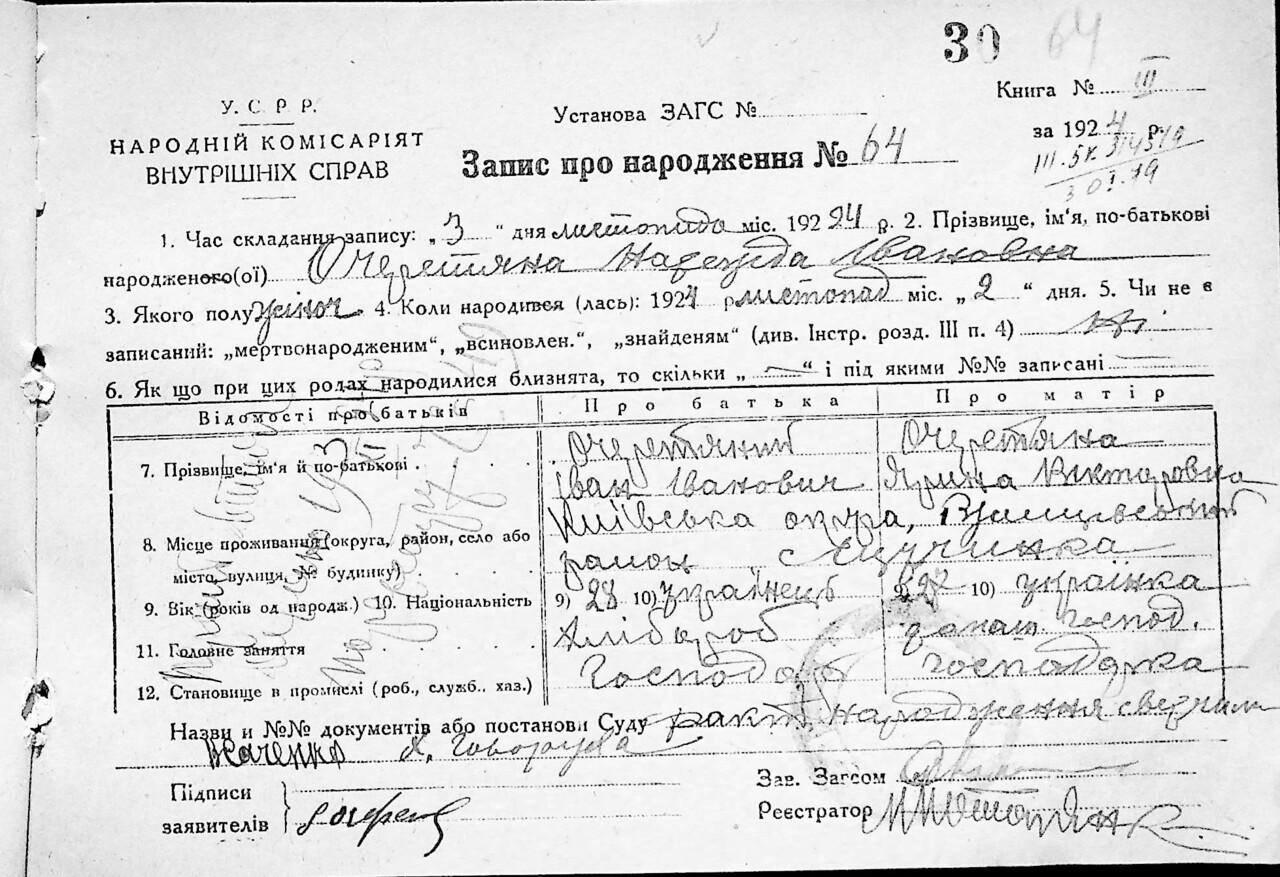 30 64
Книга № III
У. С. Р. Р.
Установа ЗАГС №
за 1924 р.
НАРОДНІЙ КОМІСАРІЯТ
ВНУТРІШНІХ СПРАВ
Запис про народження № 64
1. Час складання запису: „3“ дня листопада міс. 192 24 р. 2. Прізвище, ім‘я, по-батькові
народженого(ої) Очеретяна Надежда Івановна
3. Якого полу жіноч. 4. Коли народився (лась): 1924 р листопад міс. „2“ дня. 5. Чи не є
записаний: „мертвонародженим“, „всиновлен.“, „знайденям“ (див. Інстр. розд. III п. 4) ні
6. Як що при цих родах народилися близнята, то скільки „—“ і під якими №№ записані —
Відомості про батьків Про батька Про матір
7. Прізвище, ім‘я й по-батькові Очеретяний Очеретяна
Іван Іванович Ярина Вікторовна
Київська округа,
8. Місце проживання (округа, район, село або район, с
місто, вулиця, № будинку)
9. Вік (років од народж.) 10. Національність 9) 28 10) українець 9) 27 10) українка
11. Головне заняття Хлібороб госпо́д.
12. Становище в промислі (роб., служб., хаз.) Господар господарка
Назви и №№ документів або постанови Суду факт народження свідчили
Ткаченко
Підписи
заявителів
Зав. Загсом
Реєстратор